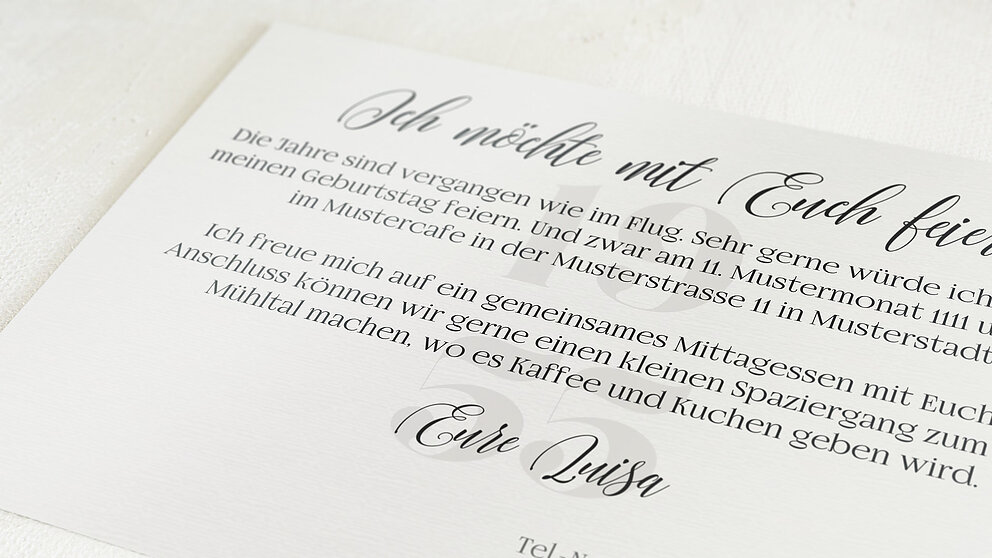 Ich möchte mit Euch feier
Die Jahre sind vergangen wie im Flug. Sehr gerne würde ich
meinen Geburtstag feiern. Und zwar am 11. Mustermonat 1111 u
im Mustercafe in der Musterstrasse 11 in Musterstadt
Ich freue mich auf ein gemeinsames Mittagessen mit Euch
Anschluss können wir gerne einen kleinen Spaziergang zum
Mühltal machen, wo es Kaffee und Kuchen geben wird.
Eure Luisa
Tel.-N